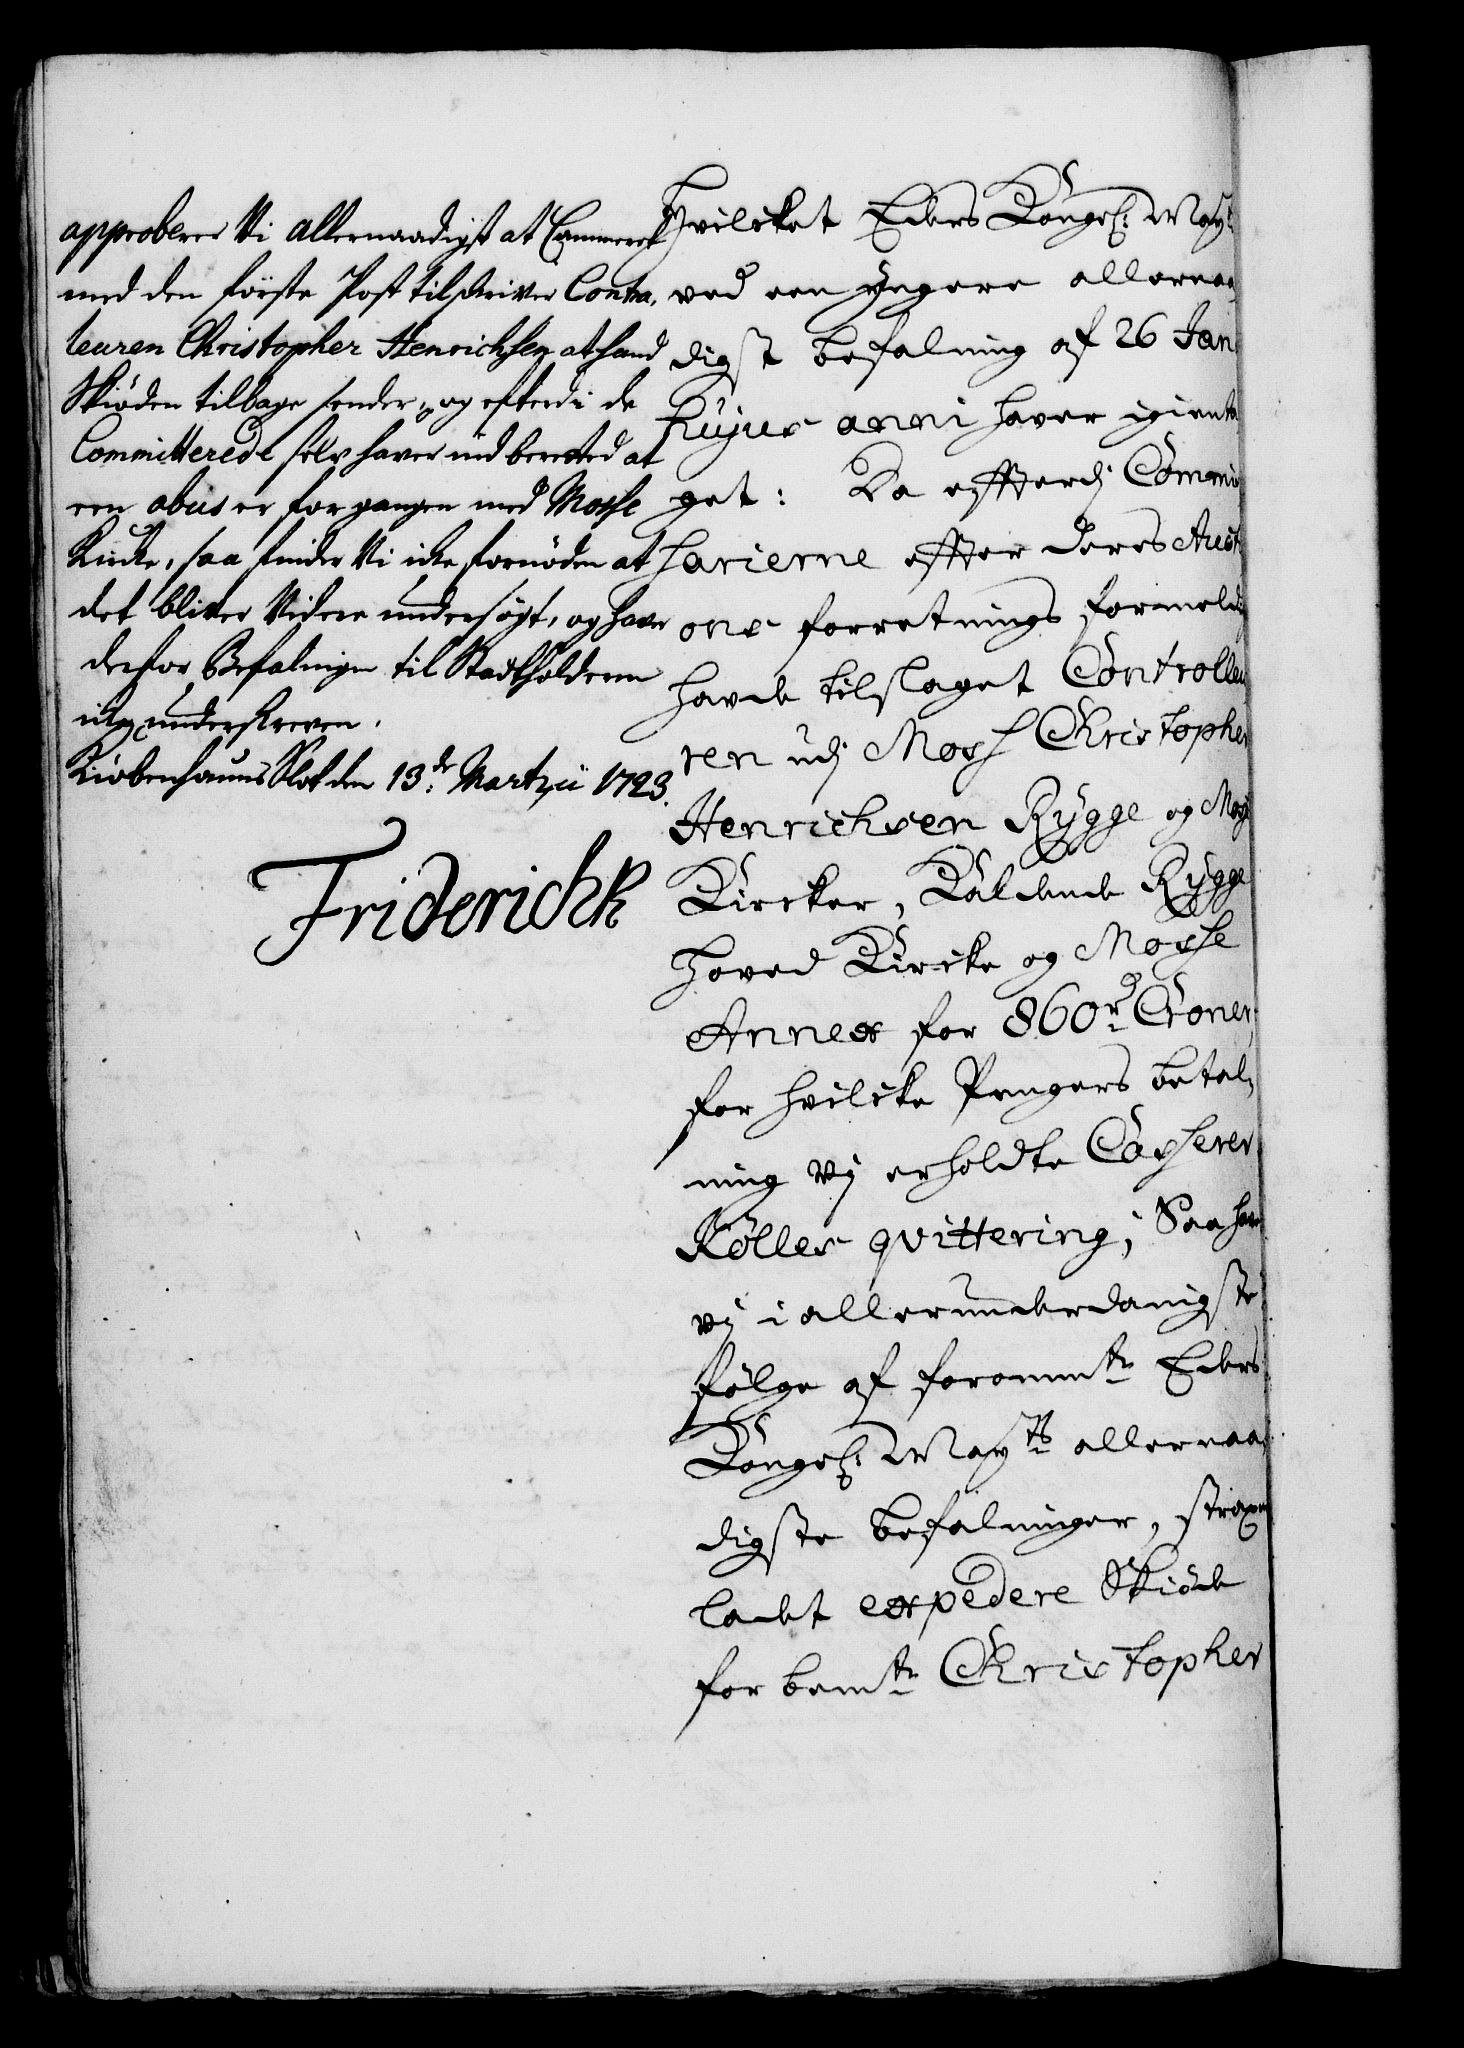 approberer Vi allernaadigst at Cammeret
med den förste Post tilskriver Contro,
leuren Christopher Henrichsen at hand
Skiöden tilbage sender, og efterdi de
Committerede selv haver ind beretted at
een abus er forgangen med Mosse
Kirke, saa finder Vi icke fornöden at
det bliver Videre undersögt, og haver
derfor Befalingen til Stadtholderen
icke underskreven.
Kiöbenhauns Slot den 13de Martzii 1723.
Friderich R
Hvilcket Eders Kongel: Mayts
ved een yngere allernaa
digst befalning af 26 Jan
hujus anni haver igienta
get: Da effterdj Commis
sarierne effter deres Aucti
ons forretnings formelding
hafde tilslaget Controlleu
ren udj Moss Christopher
Henrichsen Rygge og Moss
Kircker, Kaldende Rygge
Hoved Kircke og Mosse
Annex for 860 rd Croner,
for hvilcke Pengers betal,
ning vj erholdte Casserer
Kölles qvittering; Saa have
vj i allerunderdanigste
fölge af forommte Eders
Kongel: Mayts allernaa,
digste befalninger, straxen
ladet expedere Skiöde
for bemte Christopher